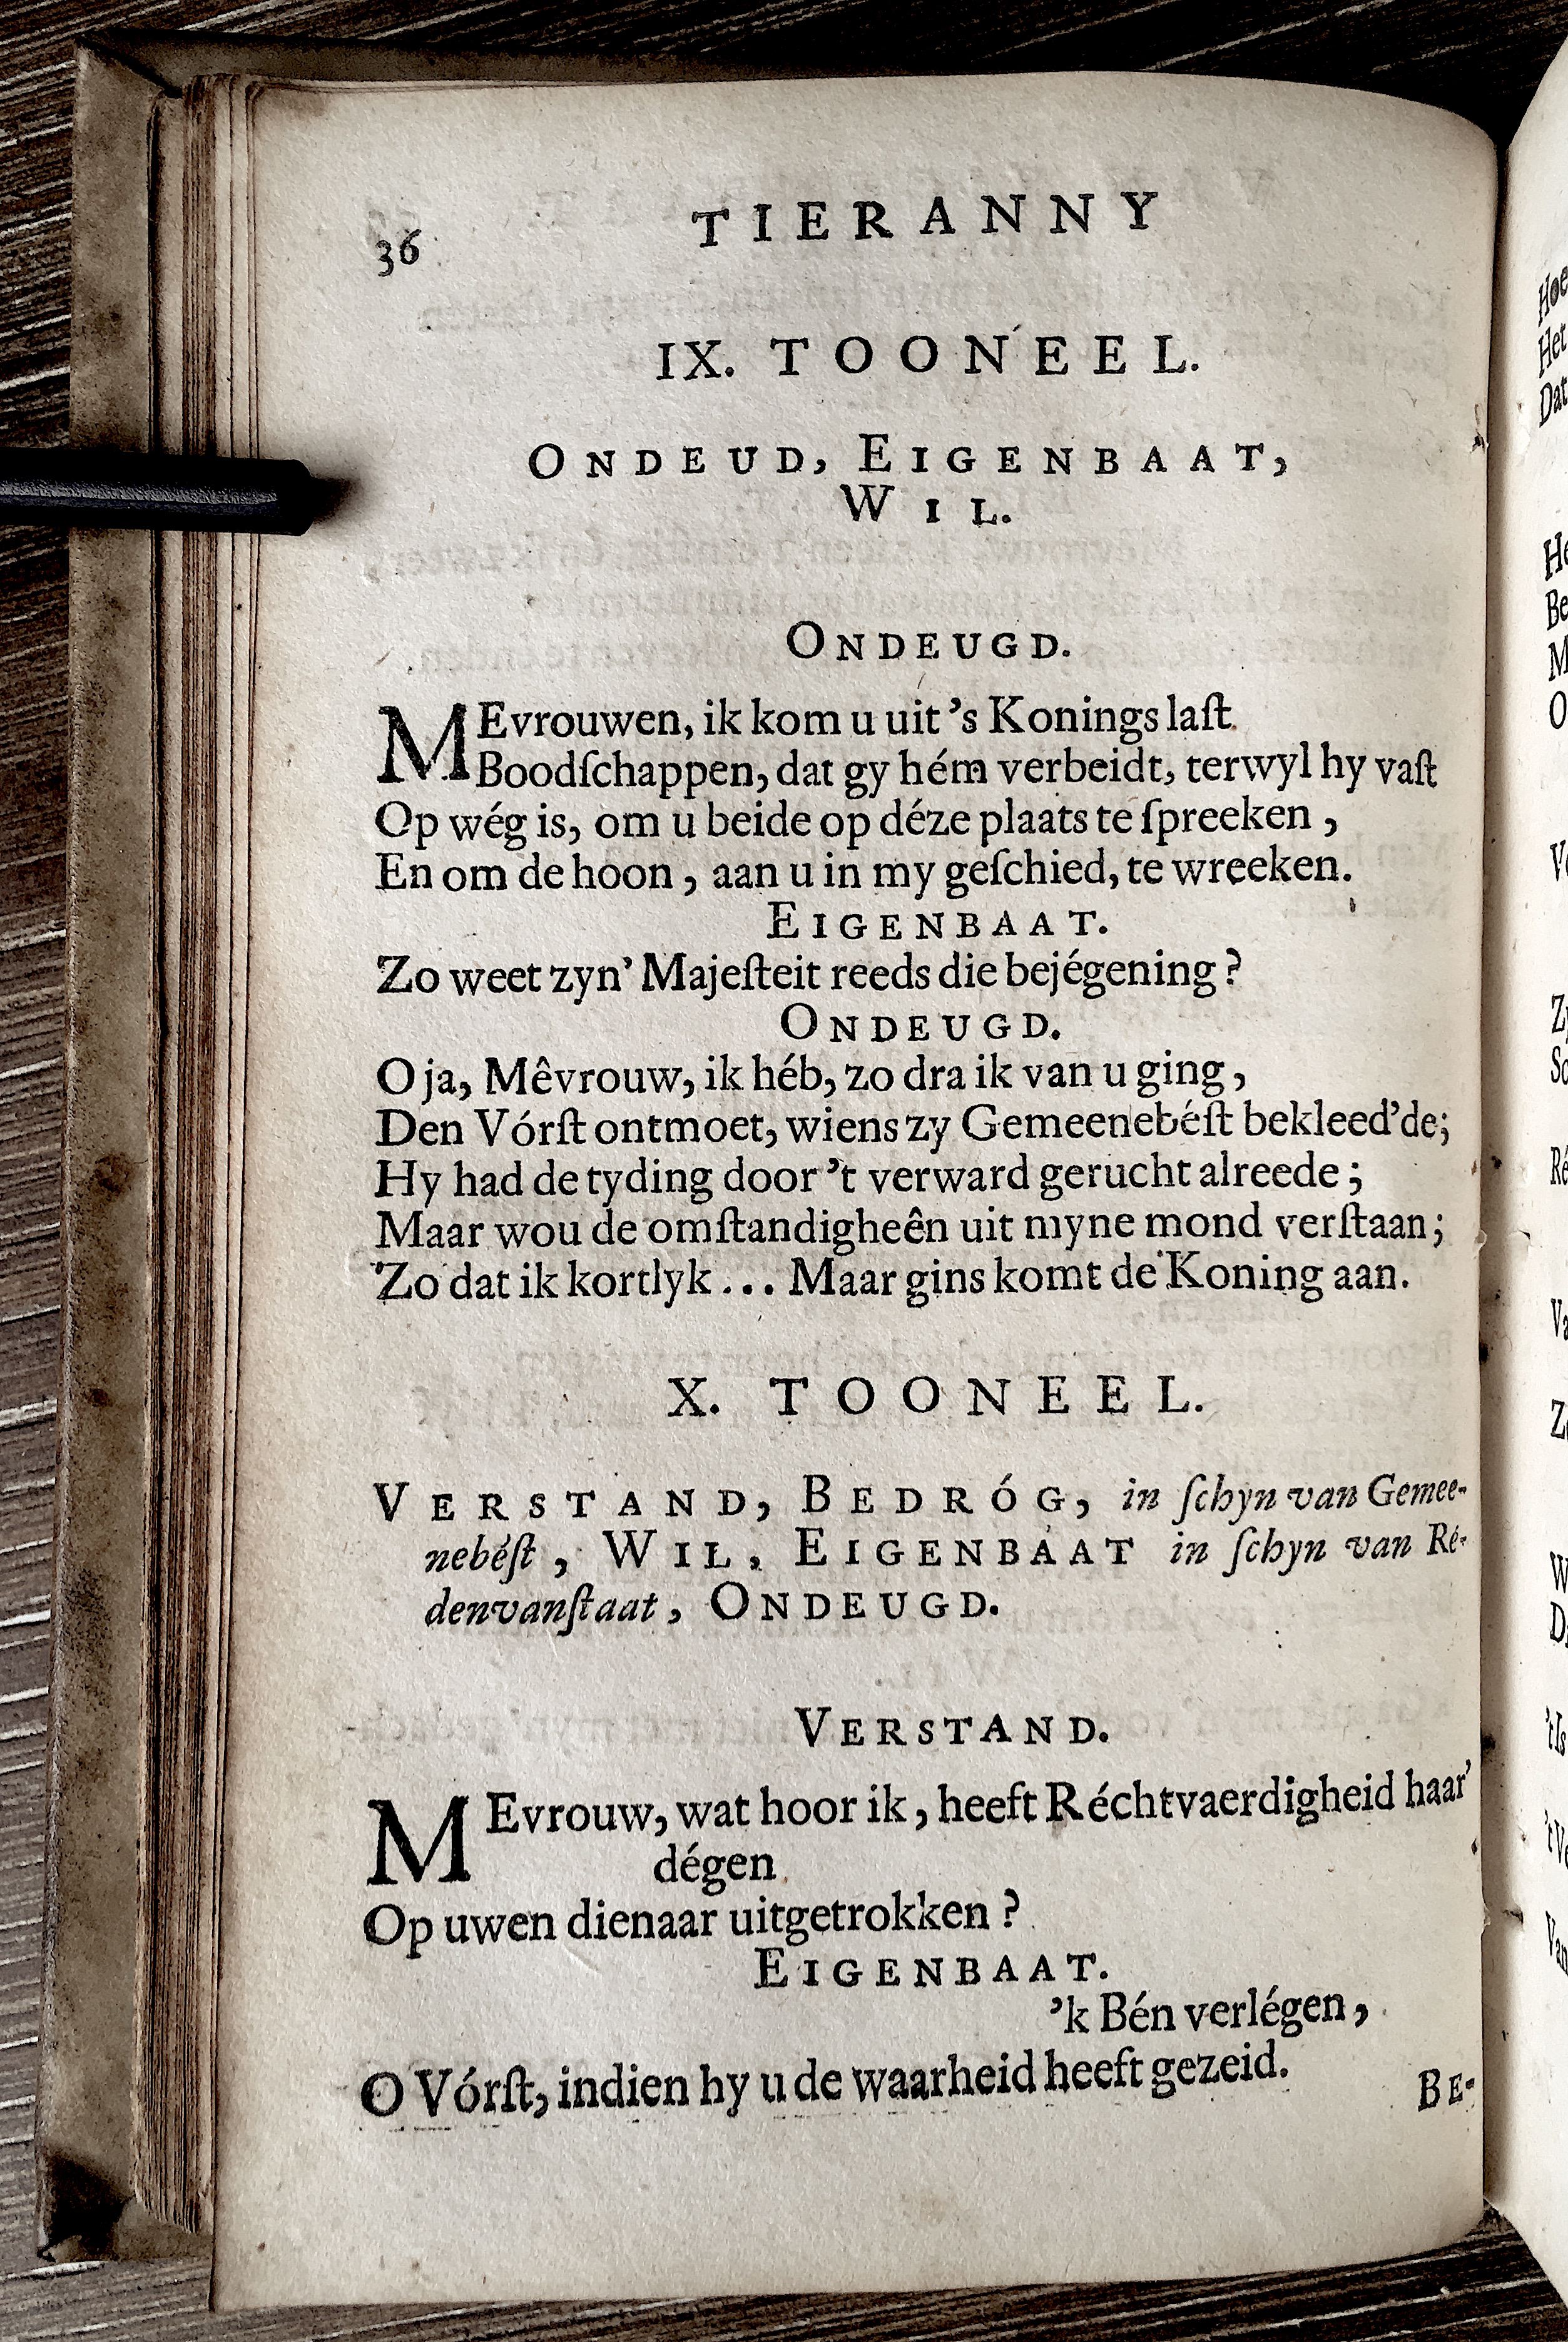 36
TIERANNY
IX. TOONEEL.
ONDEUD, EIGENBAAT,
WIL.
ONDEUGD.
MEvrouwen, ik kom u uit 's Konings laſt
Boodſchappen, dat gy hém verbeidt, terwyl hy vaſt
Op wég is, om u beide op déze plaats te ſpreeken,
En om de hoon, aan u in my geſchied, te wreeken.
EIGENBAAT.
Zo weet zyn' Majeſteit reeds die bejégening?
ONDEUGD.
O ja, Mêvrouw, ik héb, zo dra ik van u ging,
Den Vórſt ontmoet, wiens zy Gemeenebéſt bekleed'de;
Hy had de tyding door 't verward gerucht alreede;
Maar wou de omſtandigheên uit myne mond verſtaan;
Zo dat ik kortlyk... Maar gins komt de Koning aan.
X. TOONEEL.
VERSTAND, BEDRÓG, in ſchyn van Gemee-
nebéſt, WIL, EIGENBAAT in ſchyn van Ré-
denvanſtaat, ONDEUGD.
VERSTAND.
MEvrouw, wat hoor ik, heeft Réchtvaerdigheid haar'
dégen
Op uwen dienaar uitgetrokken?
EIGENBAAT.
'k Bén verlégen,
O Vórſt, indien hy u de waarheid heeft gezeid.
BE-
Hoe
Het
Dat